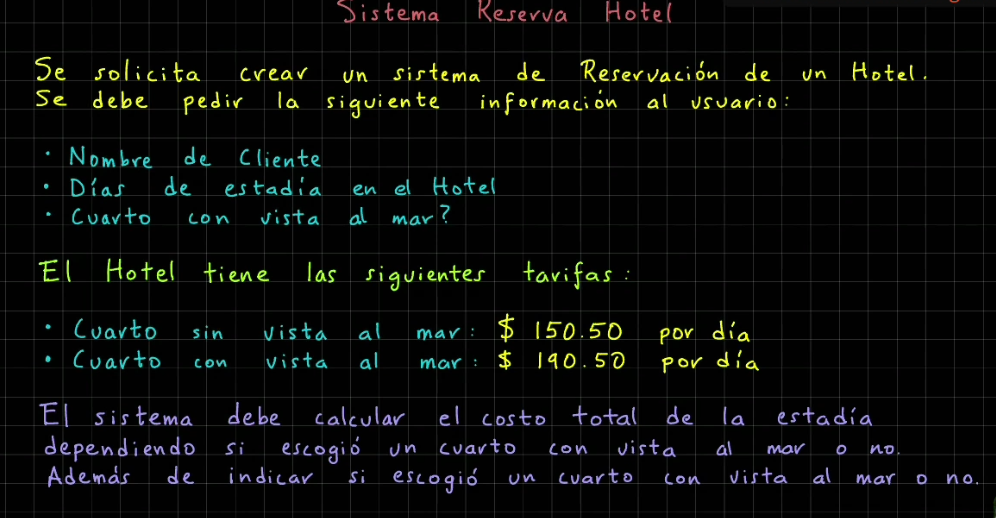 Sistema Reserva Hotel
Se solicita crear un sistema de Reservación de un Hotel.
Se debe pedir la siguiente información al usuario:
· Nombre de Cliente
· Días de estadía en el Hotel
· Cuarto con vista al mar?
El Hotel tiene las siguientes tarifas:
· Cuarto sin vista al mar: $ 150.50 por día
· Cuarto con vista al mar: $ 190.50 por día
El sistema debe calcular el costo total de la estadía
dependiendo si escogió un cuarto con vista al mar o no.
Además de indicar si escogió un cuarto con vista al mar o no.